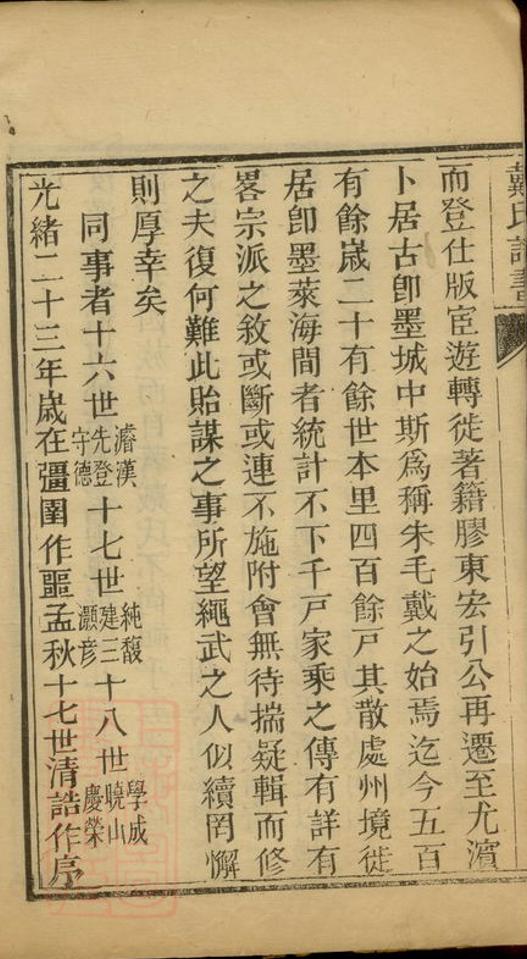 戴氏譜書
而登仕版宦遊轉徙著籍膠東宏引公再遷至尤濱
卜居古卽墨城中斯爲稱朱毛戴之始焉迄今五百
有餘歲二十有餘世本里四百餘戸其散處州境徙
居卽墨萊海間者統計不下千戸家乘之傳有詳有
畧宗派之敘或斷或連不施附會無待揣疑輯而修
之夫復何難此貽謀之事所望繩武之人似續罔懈
則厚幸矣
同事者十六世濬漢先登守德十七世純馥建三灝彦十八世學成曉山慶榮
光緒二十三年歲在彊圉作噩孟秋十七世清誥作序